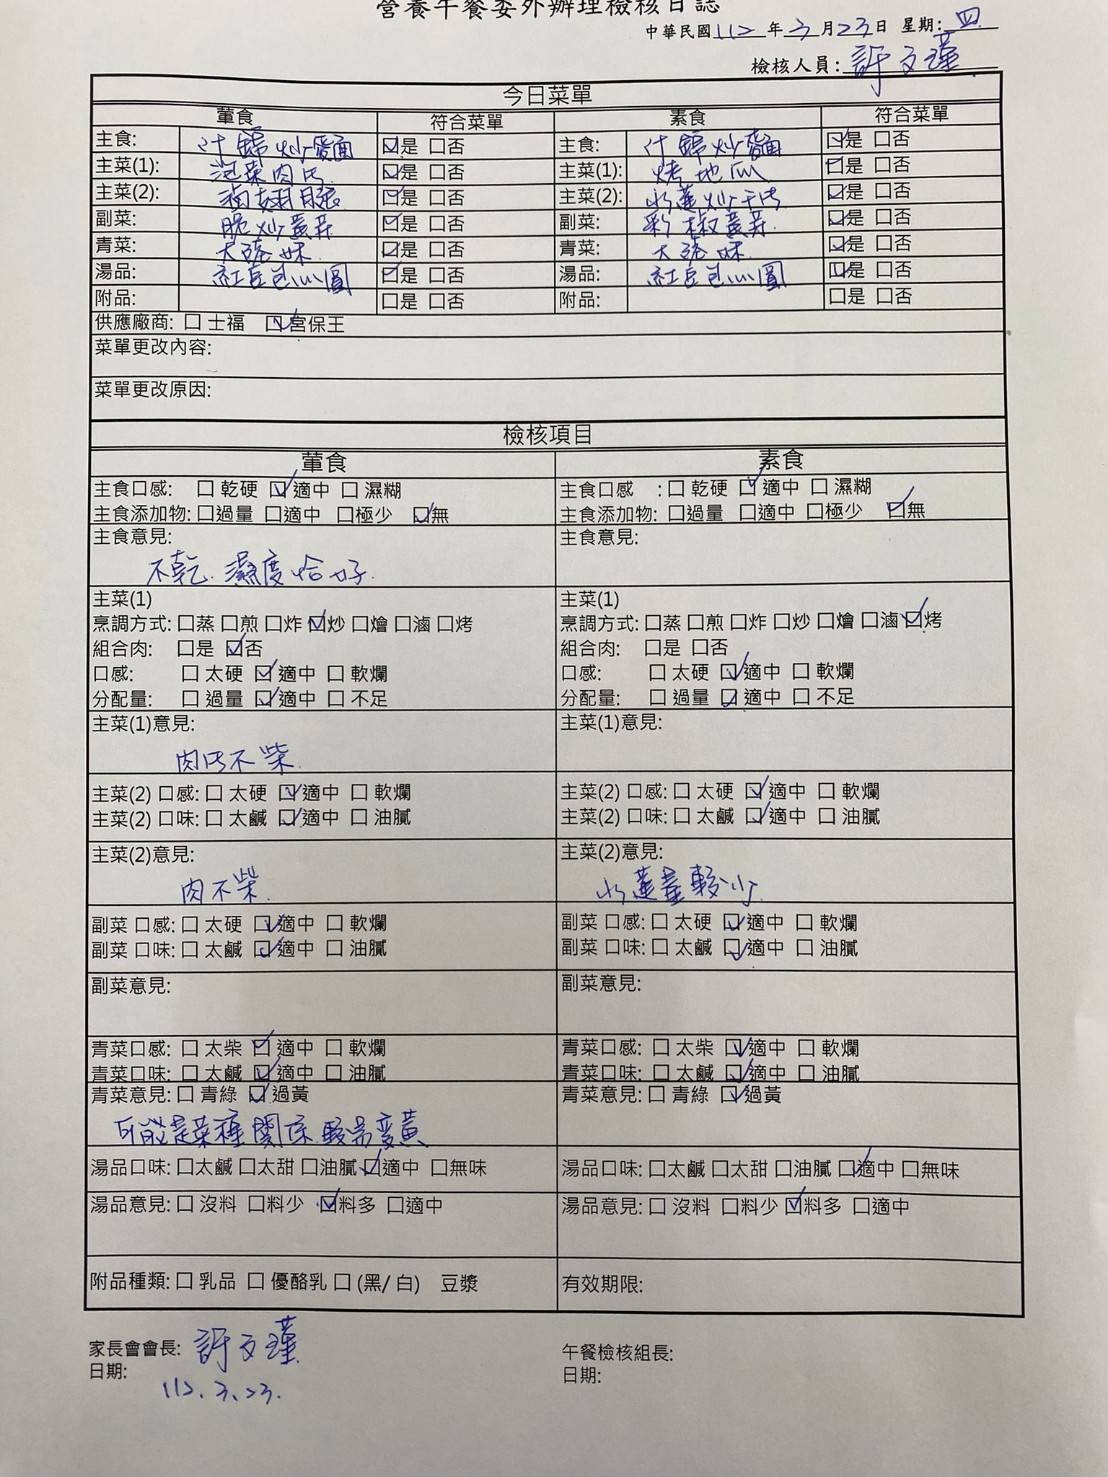 營養午餐委外辦理檢核日誌
中華民國112年3月23日 星期:四
檢核人員:許文瑾
今日菜單
葷食 符合菜單 素食 符合菜單
主食: 什錦炒麵 ☑是 口否 主食: 什錦炒麵 ☑是 口否
主菜(1): 泡菜肉片 ☑是 口否 主菜(1): 烤地瓜 ☑是 口否
主菜(2): 滷翅腿 ☑是 口否 主菜(2): 水蓮炒干片 ☑是 口否
副菜: 脆炒黃芽 ☑是 口否 副菜: 彩椒黃芽 ☑是 口否
青菜: 大陸妹 ☑是 口否 青菜: 大陸妹 ☑是 口否
湯品: 紅豆包心圓 ☑是 口否 湯品: 紅豆包心圓 ☑是 口否
附品: 口是 口否 附品: 口是 口否
供應廠商: 口 士福 ☑宮保王
菜單更改內容:
菜單更改原因:
檢核項目
葷食 素食
主食口感: 口 乾硬 ☑適中 口 濕糊 主食口感 :口 乾硬 ☑適中 口 濕糊
主食添加物:口過量 口適中 口極少 ☑無 主食添加物:口過量 口適中 口極少 ☑無
主食意見: 主食意見:
不乾.濕度恰好.
主菜(1) 主菜(1)
烹調方式:口蒸 口煎 口炸 ☑炒 口燴 口滷 口烤 烹調方式:口蒸 口煎 口炸 口炒 口燴 口滷 ☑烤
組合肉: 口是 ☑否 組合肉: 口是 口否
口感: 口 太硬 ☑適中 口 軟爛 口感: 口 太硬 ☑適中 口 軟爛
分配量: 口 過量 ☑適中 口 不足 分配量: 口 過量 ☑適中 口 不足
主菜(1)意見: 主菜(1)意見:
肉片不柴.
主菜(2) 口感:口 太硬 ☑適中 口 軟爛 主菜(2) 口感:口 太硬 ☑適中 口 軟爛
主菜(2) 口味:口 太鹹 ☑適中 口 油膩 主菜(2) 口味:口 太鹹 ☑適中 口 油膩
主菜(2)意見: 主菜(2)意見:
肉不柴. 水蓮量較少.
副菜 口感:口 太硬 ☑適中 口 軟爛 副菜 口感:口 太硬 ☑適中 口 軟爛
副菜 口味:口 太鹹 ☑適中 口 油膩 副菜 口味:口 太鹹 ☑適中 口 油膩
副菜意見: 副菜意見:
青菜口感: 口 太柴 ☑適中 口 軟爛 青菜口感: 口 太柴 ☑適中 口 軟爛
青菜口味: 口 太鹹 ☑適中 口 油膩 青菜口味: 口 太鹹 ☑適中 口 油膩
青菜意見:口 青綠 ☑過黃 青菜意見:口 青綠 ☑過黃
可能是菜種關係較易變黃
湯品口味:口太鹹 口太甜 口油膩 ☑適中 口無味 湯品口味:口太鹹 口太甜 口油膩 ☑適中 口無味
湯品意見:口 沒料 口料少 ☑料多 口適中 湯品意見:口 沒料 口料少 ☑料多 口適中
附品種類:口 乳品 口 優酪乳 口 (黑/白) 豆漿 有效期限:
家長會會長: 許文瑾 午餐檢核組長:
日期: 112.3.23. 日期: